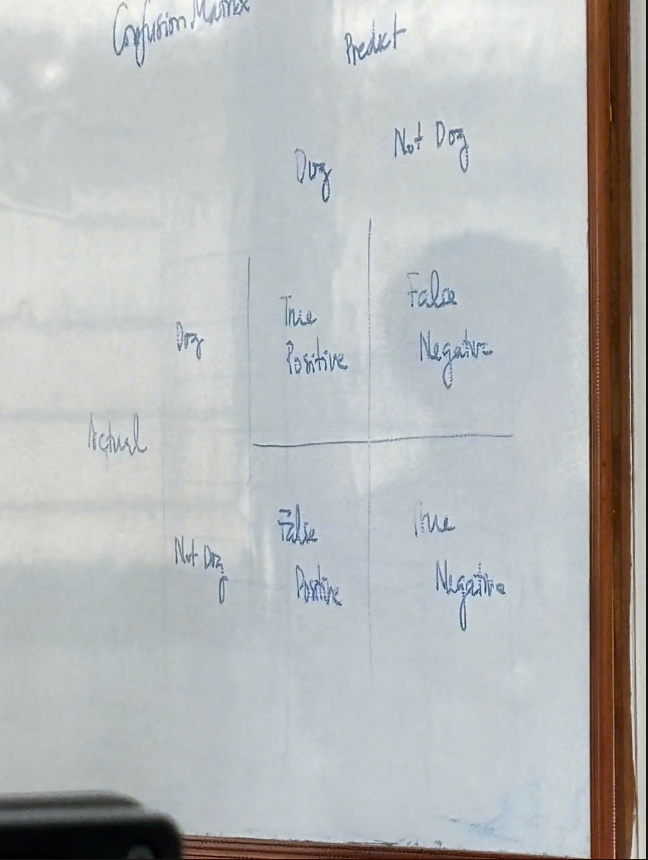 Confusion Matrix
Predict
Dog Not Dog
Dog
True
Positive
False
Negative
Actual
Not Dog
False
Positive
True
Negative